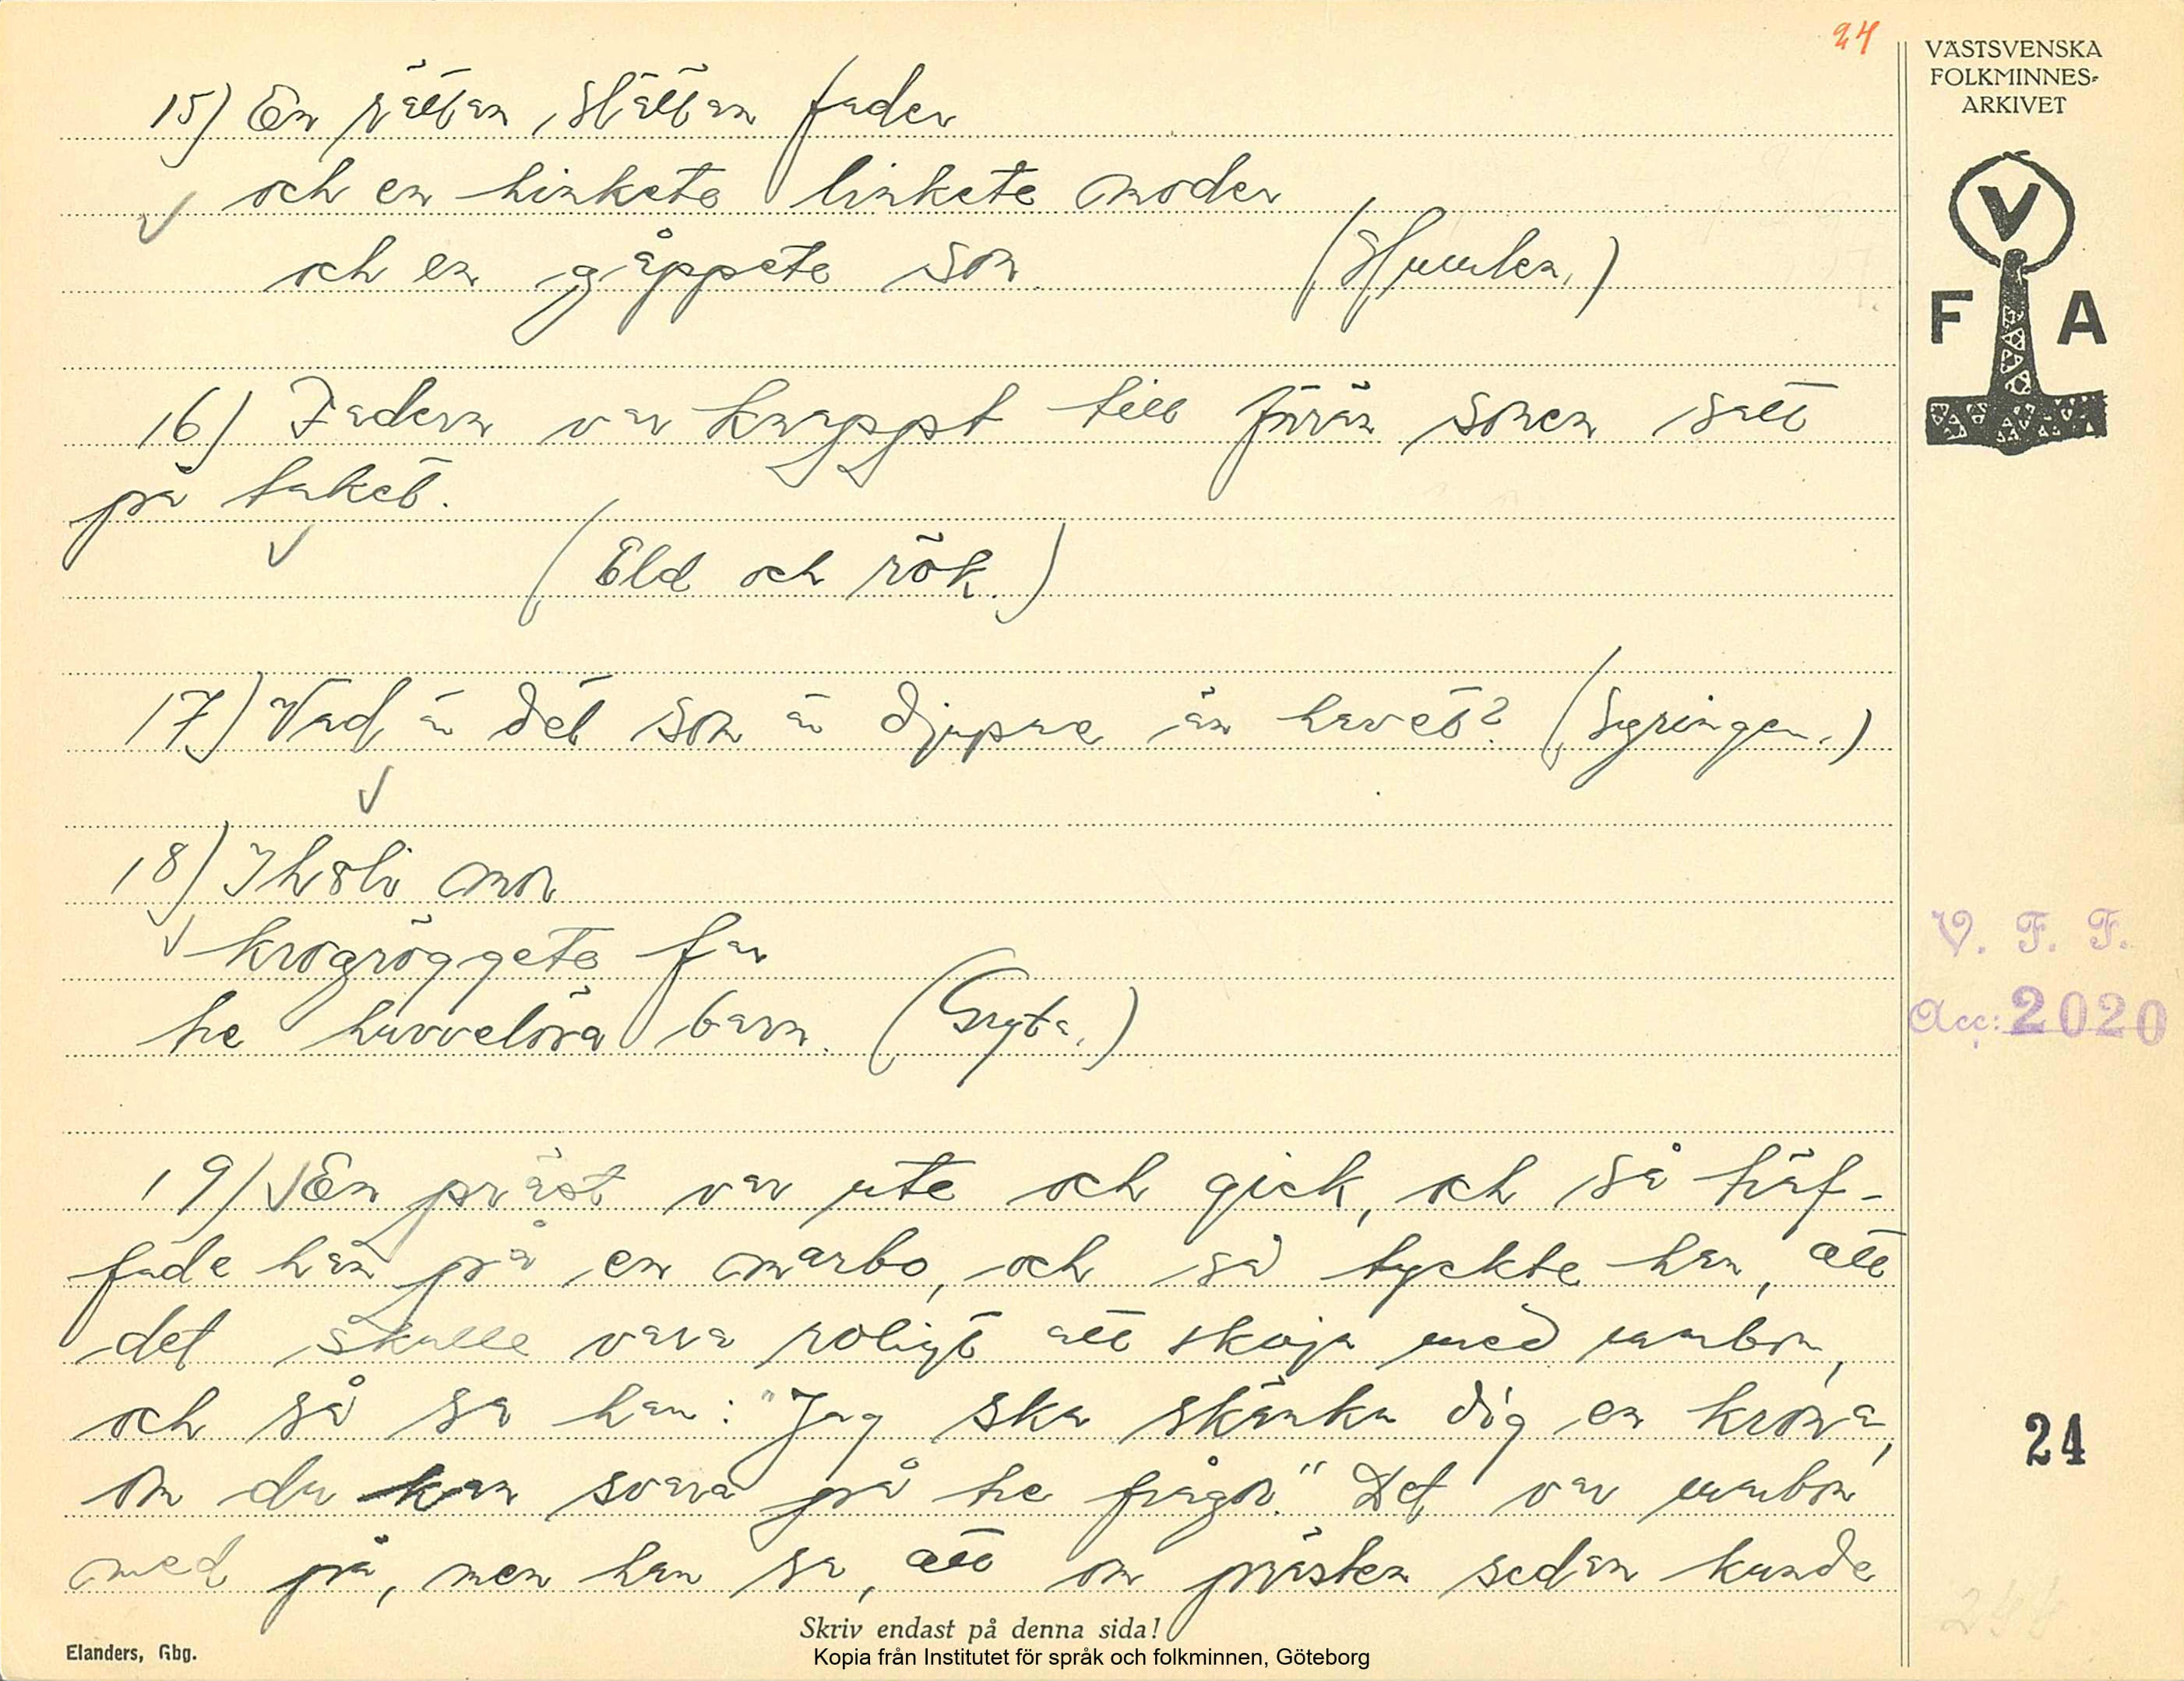 24
VÄSTSVENSKA
FOLKMINNES-
ARKIVET
V
F A
15) En rättan, slättan fader
och en hinkete linkete moder
och en gåppete son. (Humlen.)
16) Fadern var knappt till förrän sonen satt
på taket.
(Eld och rök.)
17) Vad är det som är djupare än havet? (Syringen.)
18) Iholi mor
krogröggete far
tre huvvelösa barn. (Gryta.)
19) En präst var ute och gick, och så träf-
fade han på en marbo, och så tyckte han, att
det skulle vara roligt att skoja med marbon,
och så sa han: "Jag ska skänka dig en krona,
om du kan svara på tre frågor." Det var marbon
med på, men han sa, att om prästen sedan kunde
V. F. F.
Acc: 2020
24
Skriv endast på denna sida!
Elanders, Gbg.
Kopia från Institutet för språk och folkminnen, Göteborg